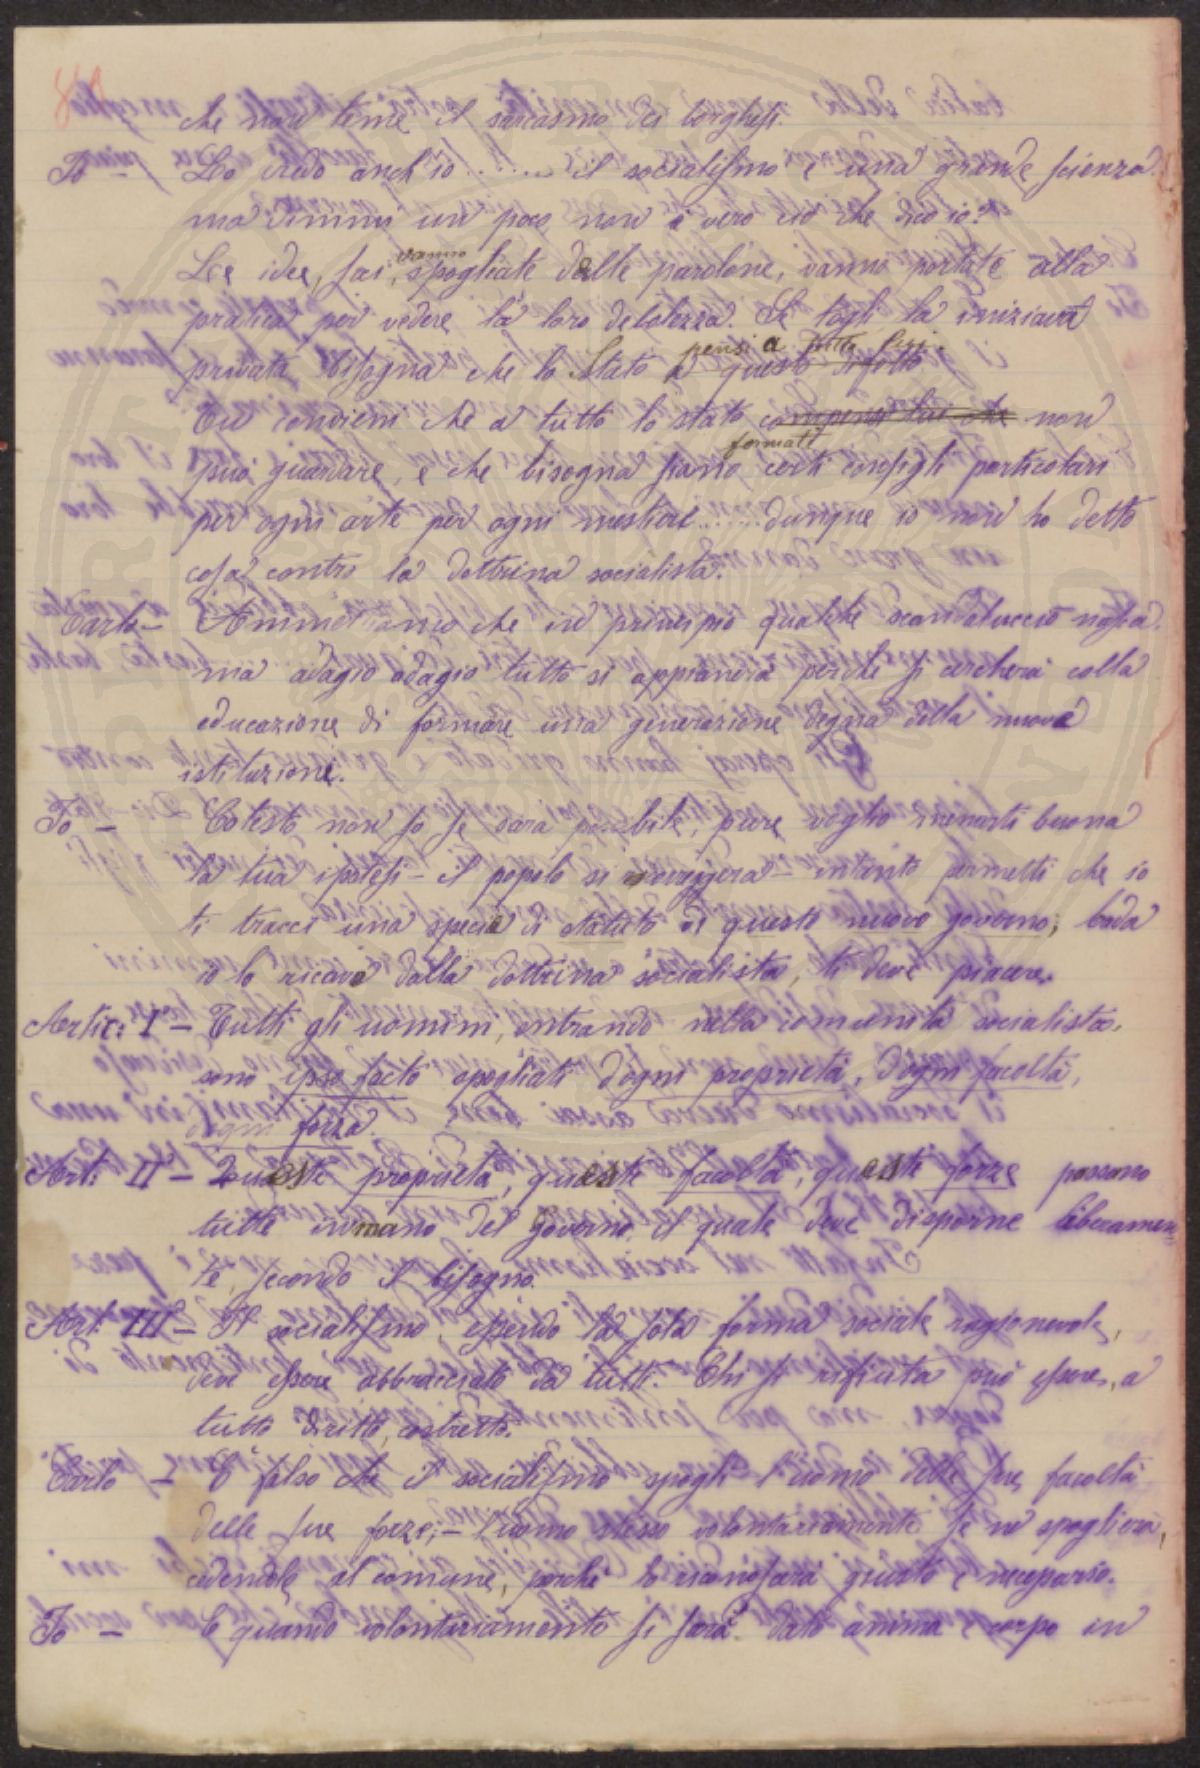 che non teme il sarcasmo dei borghesi.
Io — Lo credo anch'io ........ il socialismo è una grande scienza.
ma dimmi un poco, non è vero ciò che dico io?
Le idee, sai, vanno spogliate dalle parolone, vanno portate alla
pratica per vedere la loro debolezza. Se togli la iniziativa
privata bisogna che lo Stato pensi a tutto lui.
Tu convieni che a tutto lo stato non
può guardare, e che bisogna siano formati certi consigli particolari
per ogni arte per ogni mestiere...... dunque io non ho detto
cosa contro la dottrina socialista.
Carlo — Ammettiamo che in principio qualche scandaluccio nasca.
ma adagio adagio tutto si appianerà perchè si cercherà colla
educazione di formare una generazione degna della nuova
istituzione.
Io — Cotesto non so se sarà possibile, pure voglio menarti buona
la tua ipotesi — il popolo si correggerà — intanto permetti che io
ti tracci una specie di statuto di questo nuovo governo; bada
io lo ricavo dalla dottrina socialista, ti deve piacere.
Artic: I — Tutti gli uomini, entrando nella comunità socialista,
sono ipso facto spogliati d'ogni proprietà, d'ogni facoltà,
d'ogni forza.
Art: II — Queste proprietà, queste facoltà, queste forze passano
tutte in mano del Governo, il quale deve disporne liberamen=
te, secondo il bisogno.
Art: III — Il socialismo, essendo la sola forma sociale ragionevole,
deve essere abbracciato da tutti. Chi si rifiuta può essere, a
tutto diritto, costretto.
Carlo — È falso che il socialismo spogli l'uomo delle sue facoltà
delle sue forze; — l'uomo stesso volontariamente se ne spoglierà,
cedendole al comune, perchè lo riconoscerà giusto e necessario.
Io — E quando volontariamente si sarà dato anima e corpo in